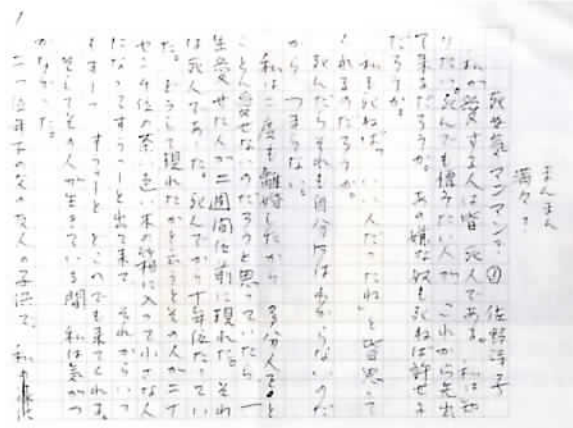 1
まんまん
満々?
死ぬ気マンマンで ① 佐野洋子
私の愛する人は皆 死人である。私は知
りたい。死んでも憎みたい人が これから先出
て来るだろうか。あの嫌な奴も死ねば許せる
だろうか。
私も死ねば、「いい人だったね」と皆思って
くれるのだろうか。
死んだらそれも自分ではわからないのだ
から つまらない。
私は二度も離婚したから 多分人をと
ことん愛せないのだろうと思っていたら 一
生愛せた人が二週間位前に現れた。それ
は死人であった。死んでから十年位たってい
た。どうして現れたかと云うとその人が二寸
か三寸位の茶色い木の箱に入って小さな人
になってすうーっと出て来て それからいつ
もすーっ すうーっと どこへでも来てくれる。
そしてその人が生きている間 私は気がつ
かなかった。
二つ位年下の父の友人の子供で、私